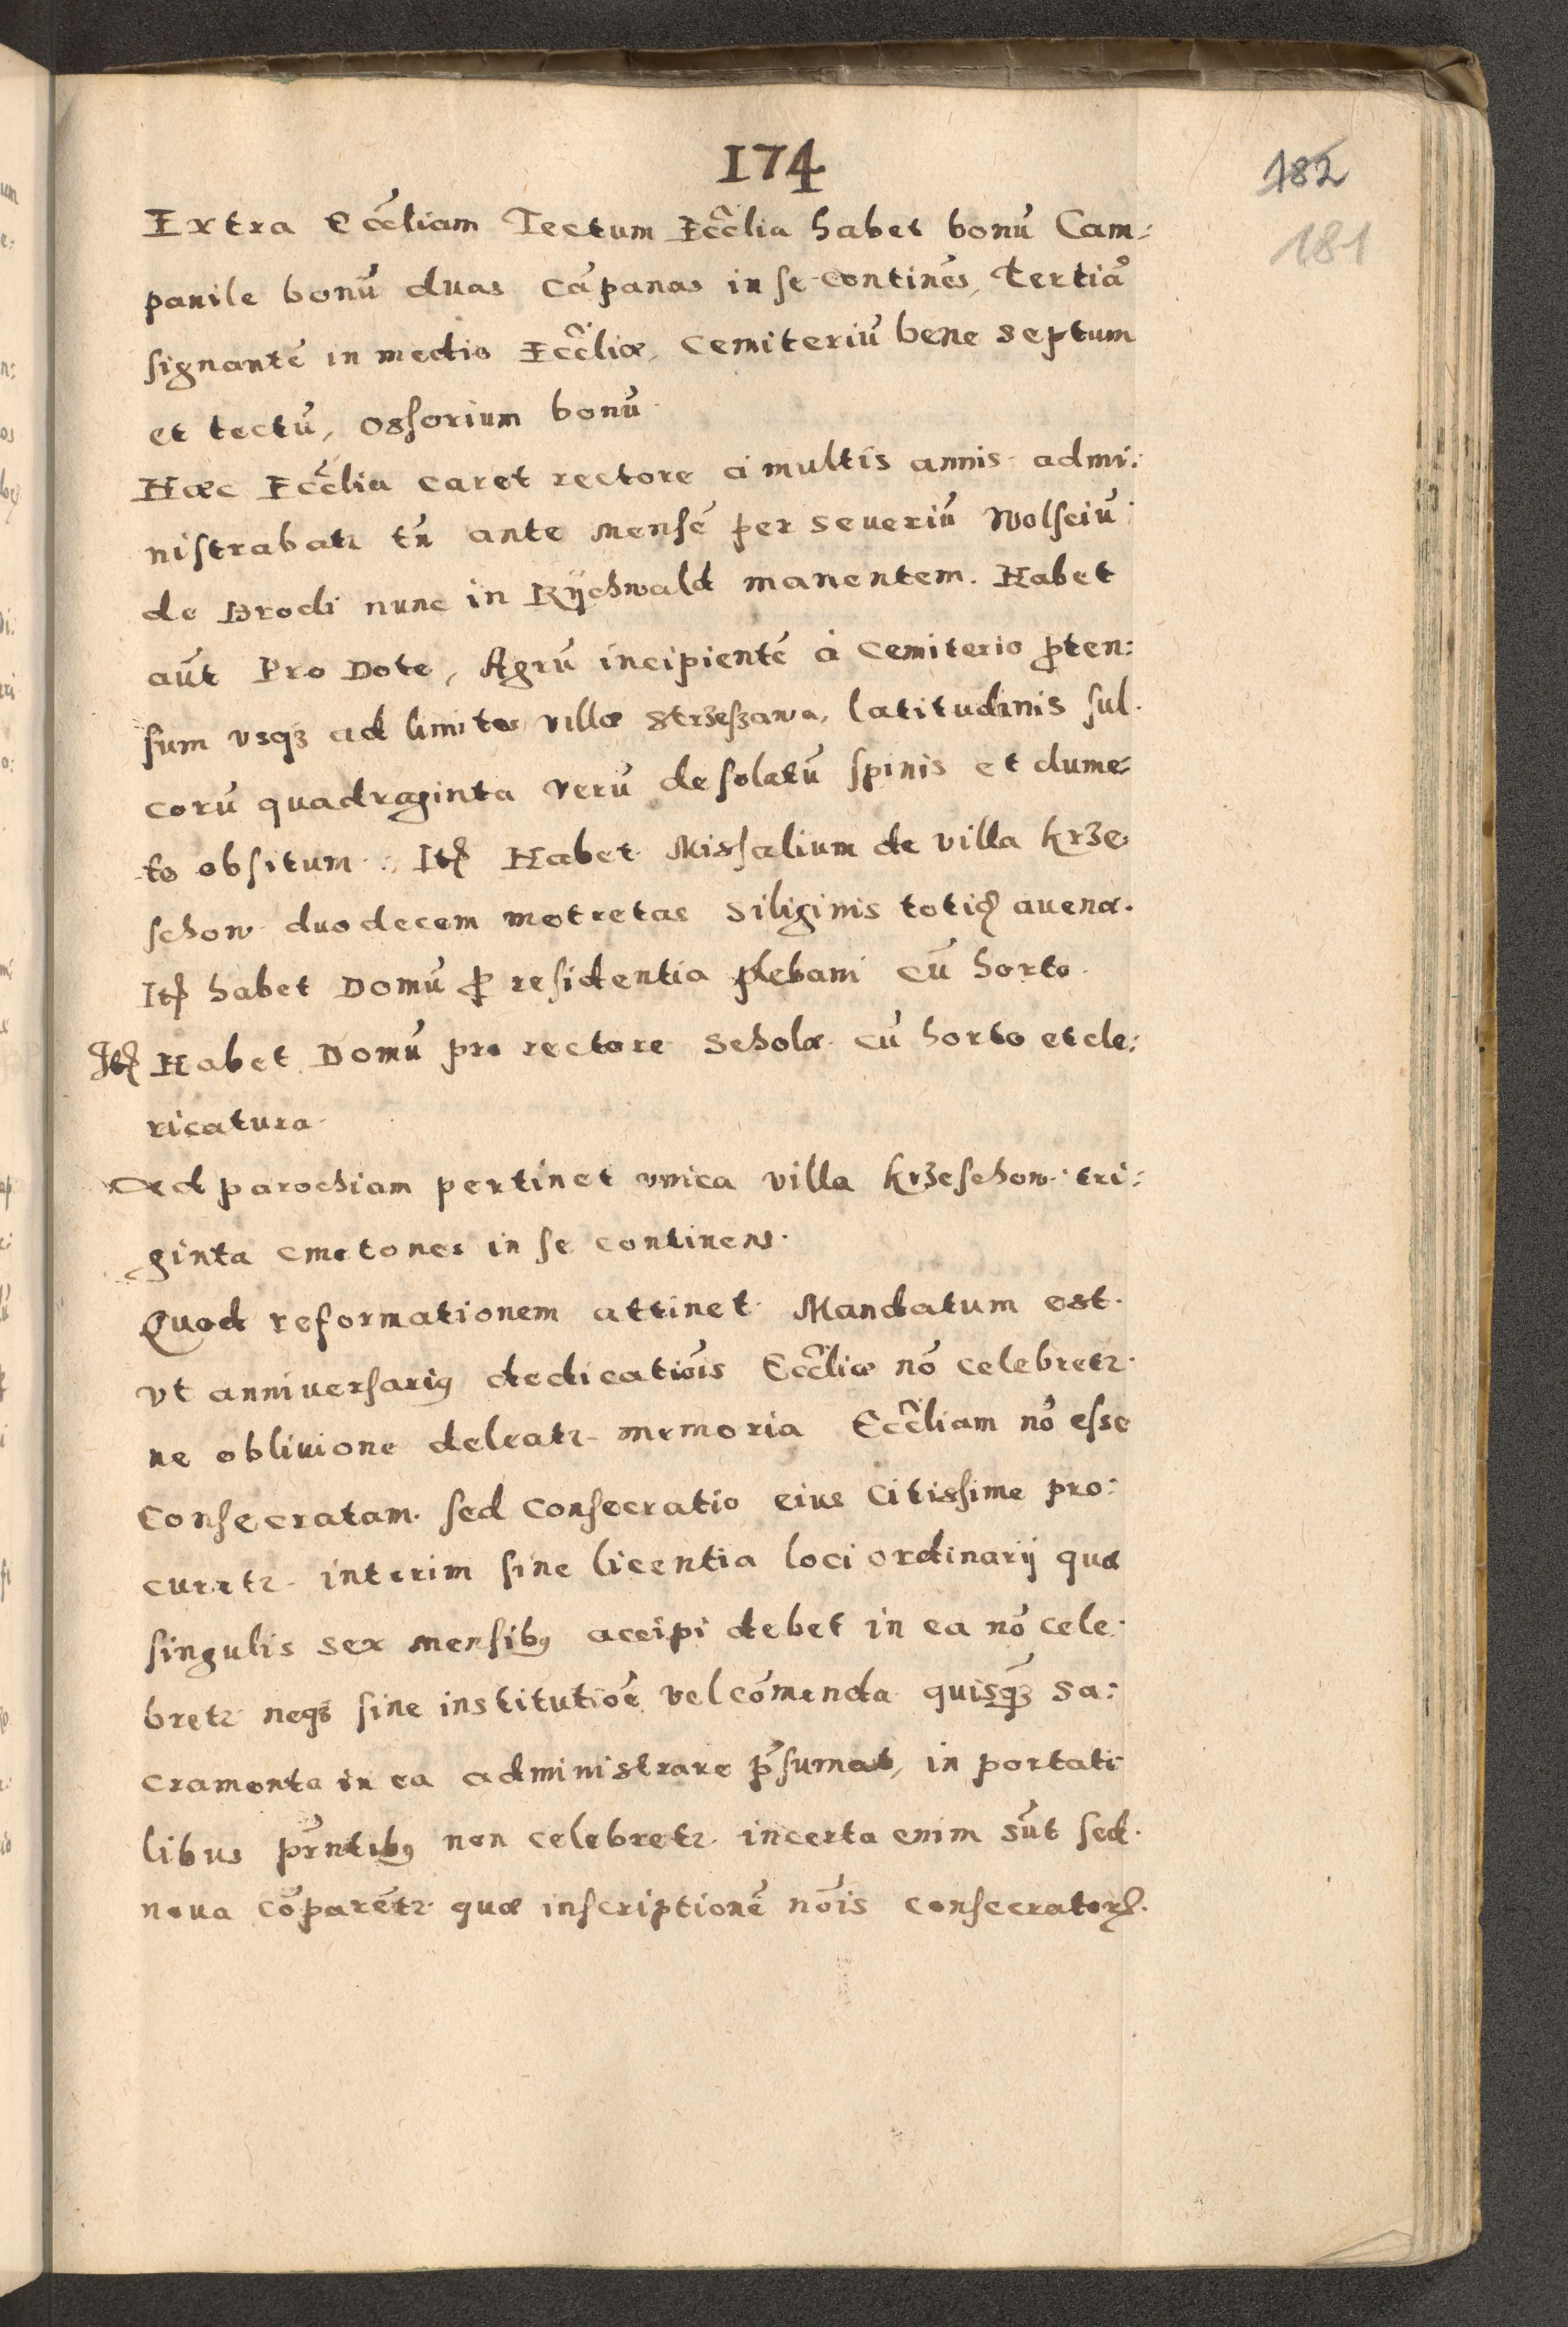 174
182
181
Extra Eccliam Tectum Ecclia habet bonū Cam:
panile bonū duas cāpanas in se continēs, Tertiā
signantē in medio Eccliæ, Cemiteriū bene septum
et tectū, ossorium bonū
Hæc Ecclia caret rectore à multis annis admi:
nistrabatr tn̄ ante mensē per Seueriū Wolsciū
de Brodi nunc in Rÿchwald manentem. Habet
aūt Pro Dote, Agrū incipientē à Cemiterio ꝓten:
sum vsqꝫ ad limites villæ Strzeszawa, latitudinis sul.
corū quadraginta verū desolatū spinis et dume:
to obsitum. Itꝭ Habet Missalium de villa krze
schow duodecem metretas Siliginis totiꝭ auenæ.
Itꝭ habet Domū ꝓ residentia plebani cū horto.
Itꝭ Habet Domū pro rectore Scholæ cū horto et cle:
ricatura.
Ad parochiam pertinet vnica villa krzeschow tri:
ginta cmetones in se continens.
Quod reformationem attinet Mandatum est.
vt anniuersariꝰ dedicatiōis Eccliæ nō celebretr
ne obliuione deleatr memoria Eccliam nō esse
Consecratam. sed Consecratio eius Citissime pro:
curetr. interim sine licentia loci ordinarij quæ
singulis sex mensibꝰ accipi debet in ea nō cele:
bretr neqꝫ sine institutiōe vel cōmenda quisqꝫ̄ sa:
cramenta in ea administrare p̄sumat, in portati
libus pr̄ntibꝰ non celebretr incerta enim sūt sed.
noua cōparētr quæ inscriptionē nōis consecratorꝭ.